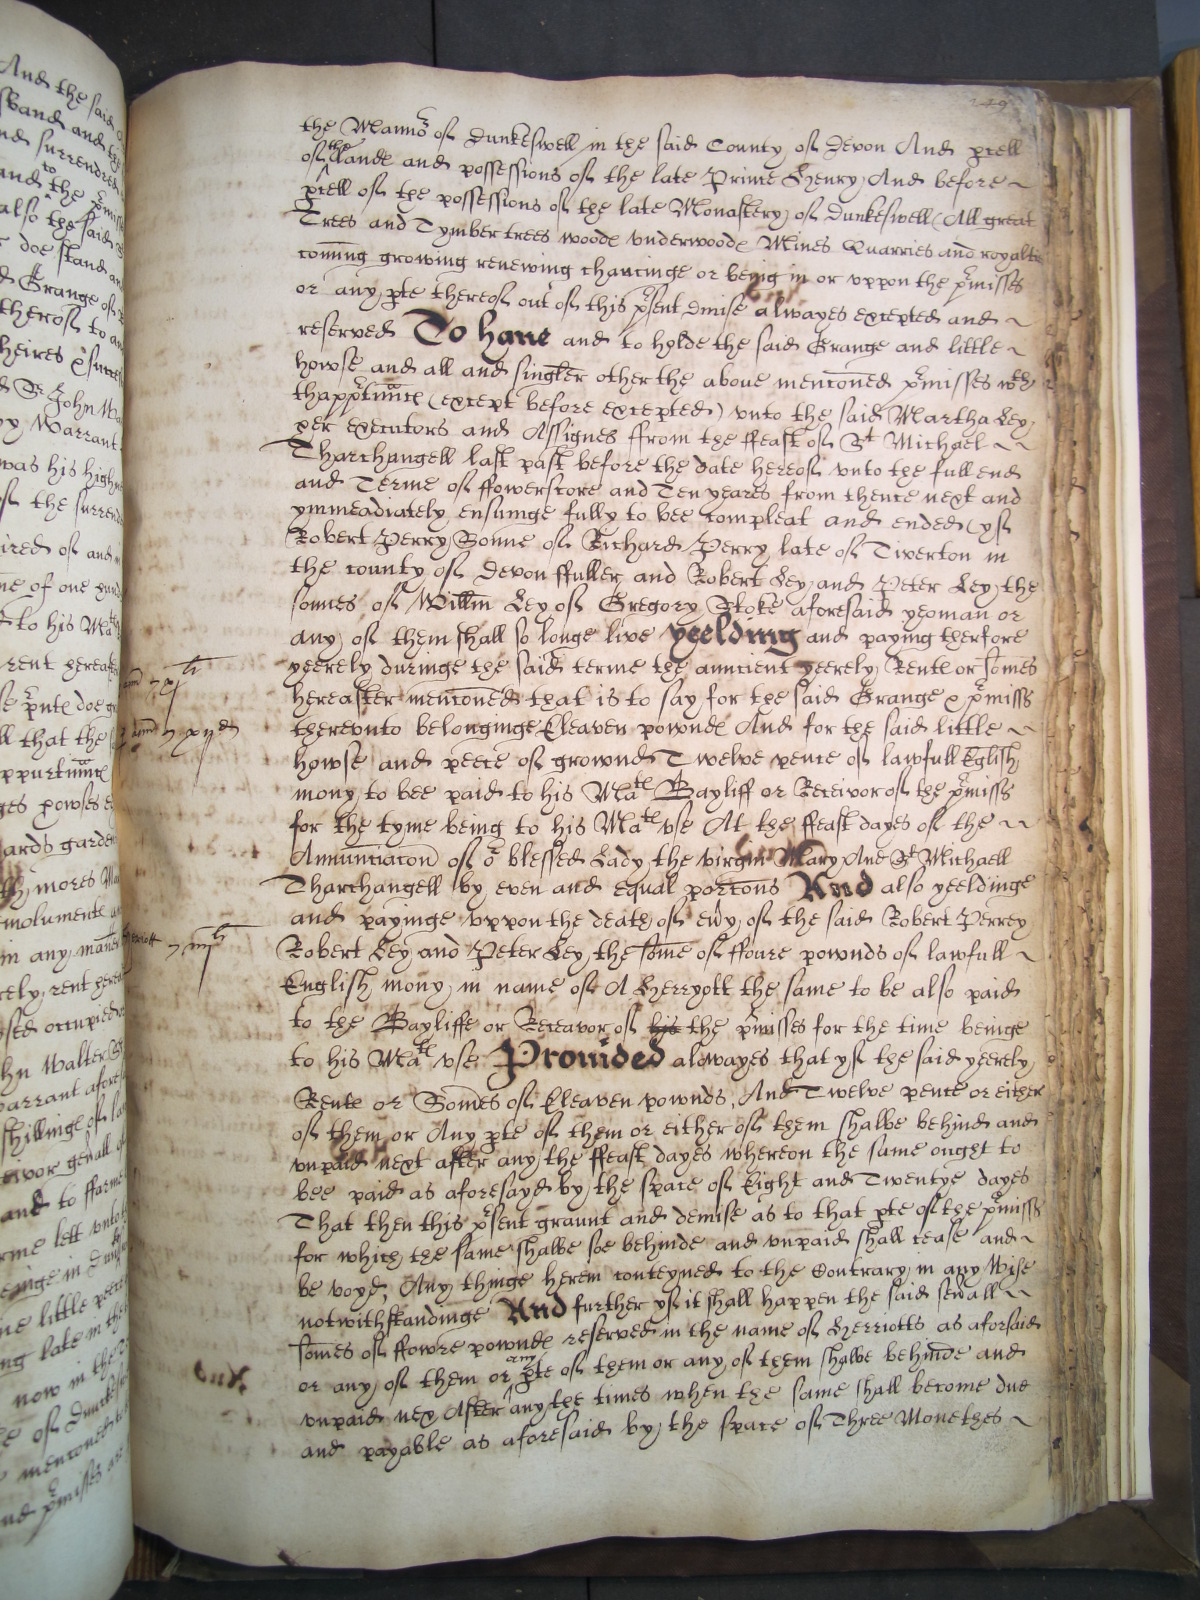 the Mannor of Dunkeswell in the said County of Devon And p̱cell
of the Landes and possessions of the late Prince Henry And before ~
p̱cell of the possessions of the late Monastery of Dunkeswell (All great
Trees and Tymber trees woodes vnderwoodes Mines Quarries and royalties
coming growing renewing chancinge or being in or vppon the p̱misses
or any p̱te thereof out of this p̱sent dmise alwayes excepted and ~
reserved To haue and to holde the said Grange and little ~
howse and all and singler other the aboue menconed p̱misses wth
thapp̱tnnces (except before excepted) vnto the said Martha Ley
her executors and Assignes ffrom the ffeast of St Michael ~ ~
Tharchangell last past before the date hereof vnto the full end
and Terme of ffowerscore and Ten yeares from thence next and
ymmeadiately ensuinge fully to bee compleat and ended (yf
Robert Perry Sonne of Richard Perry late of Tiverton in
the county of Devon ffuller and Robert Ley and Peter Ley the
sonnes of Willm Ley of Gregory Stoke aforesaid yeoman or
any of them shall so longe live yeelding and paying therfore
yeerely duringe the said terme the anncient yeerely Rente or somes
hereafter menconed that is to say for the said Grange & p̱miss
therevnto belonginge Eleaven powndes And for the said little ~
howse and peece of grownd Twelve pence of lawfull Eglish
mony to bee paid to his Mates Bayliff or Receivor of the p̱miss
for the tyme being to his Mates vse At the ffeast dayes of the ~ ~
Annunciacon of or blessed Lady the virgin Mary And St Michaell
Tharchangell by even and equal porcons And also yeeldinge
and payinge vppon the death of eṽy of the said Robert Perrey
Robert Ley and Peter Ley the some of ffoure pownds of lawfull ~
English mony in name of A Herryott the same to be also paid
to the Bayliffe or Receavor of his the p̱misses for the time beinge
to his Mates vse Prouided alwayes that yf the said yeerely
Rente or Somes of Eleaven pownds, And Twelve pence or either
of them or Any p̱te of them or either of them shalbe behind and
vnpaid next after any the ffeast dayes whereon the same ought to
bee paid as aforesayd by the space of Eight and Twentye dayes
That then this p̱sent graunt and demise as to that p̱te of the p̱miss
for which the same shalbe soe behinde and vnpaid shall cease and ~
be voyd, Any thinge herein conteyned to the Contrary in any Wise
notwithstandinge And further yf it shall happen the said seṽall ~ ~
somes of ffowre powndes reserved in the name of Herriotts as aforsaid
or any of them or any p̱te of them or any of them shalbe behinde and
vnpaid nex After any the times when the same shall become due
and payable as aforesaid by the space of Three Monethes ~